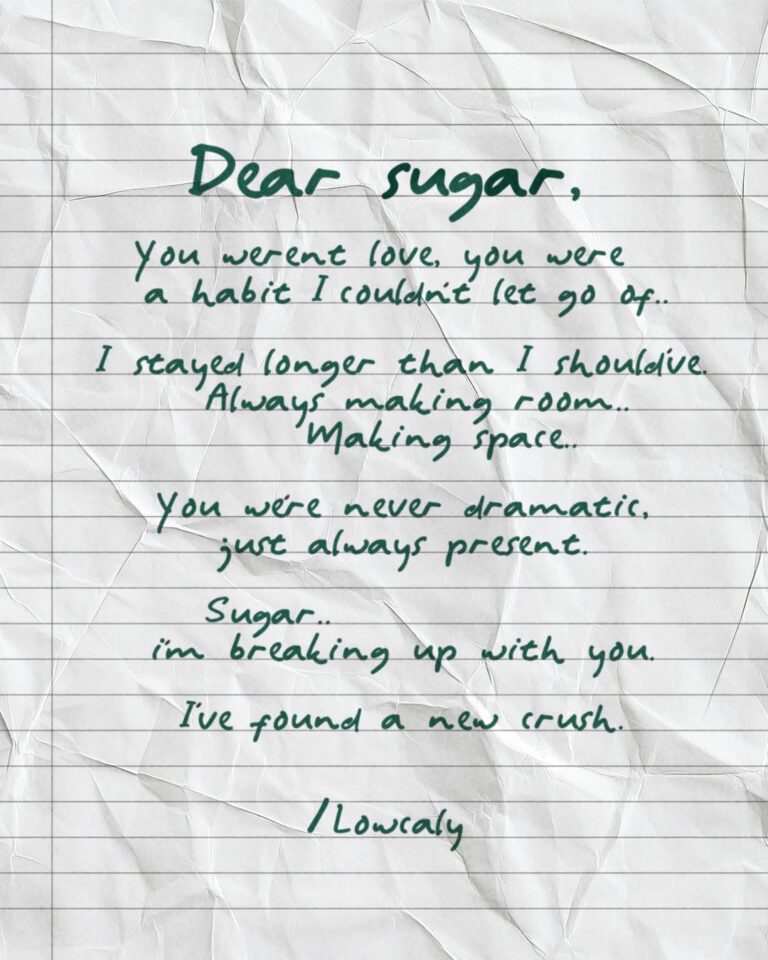 Dear sugar,
You werent love, you were
a habit I couldn't let go of..
I stayed longer than I should've.
Always making room..
Making space..
You we're never dramatic,
just always present.
Sugar..
i'm breaking up with you.
I've found a new crush.
/Lowcaly